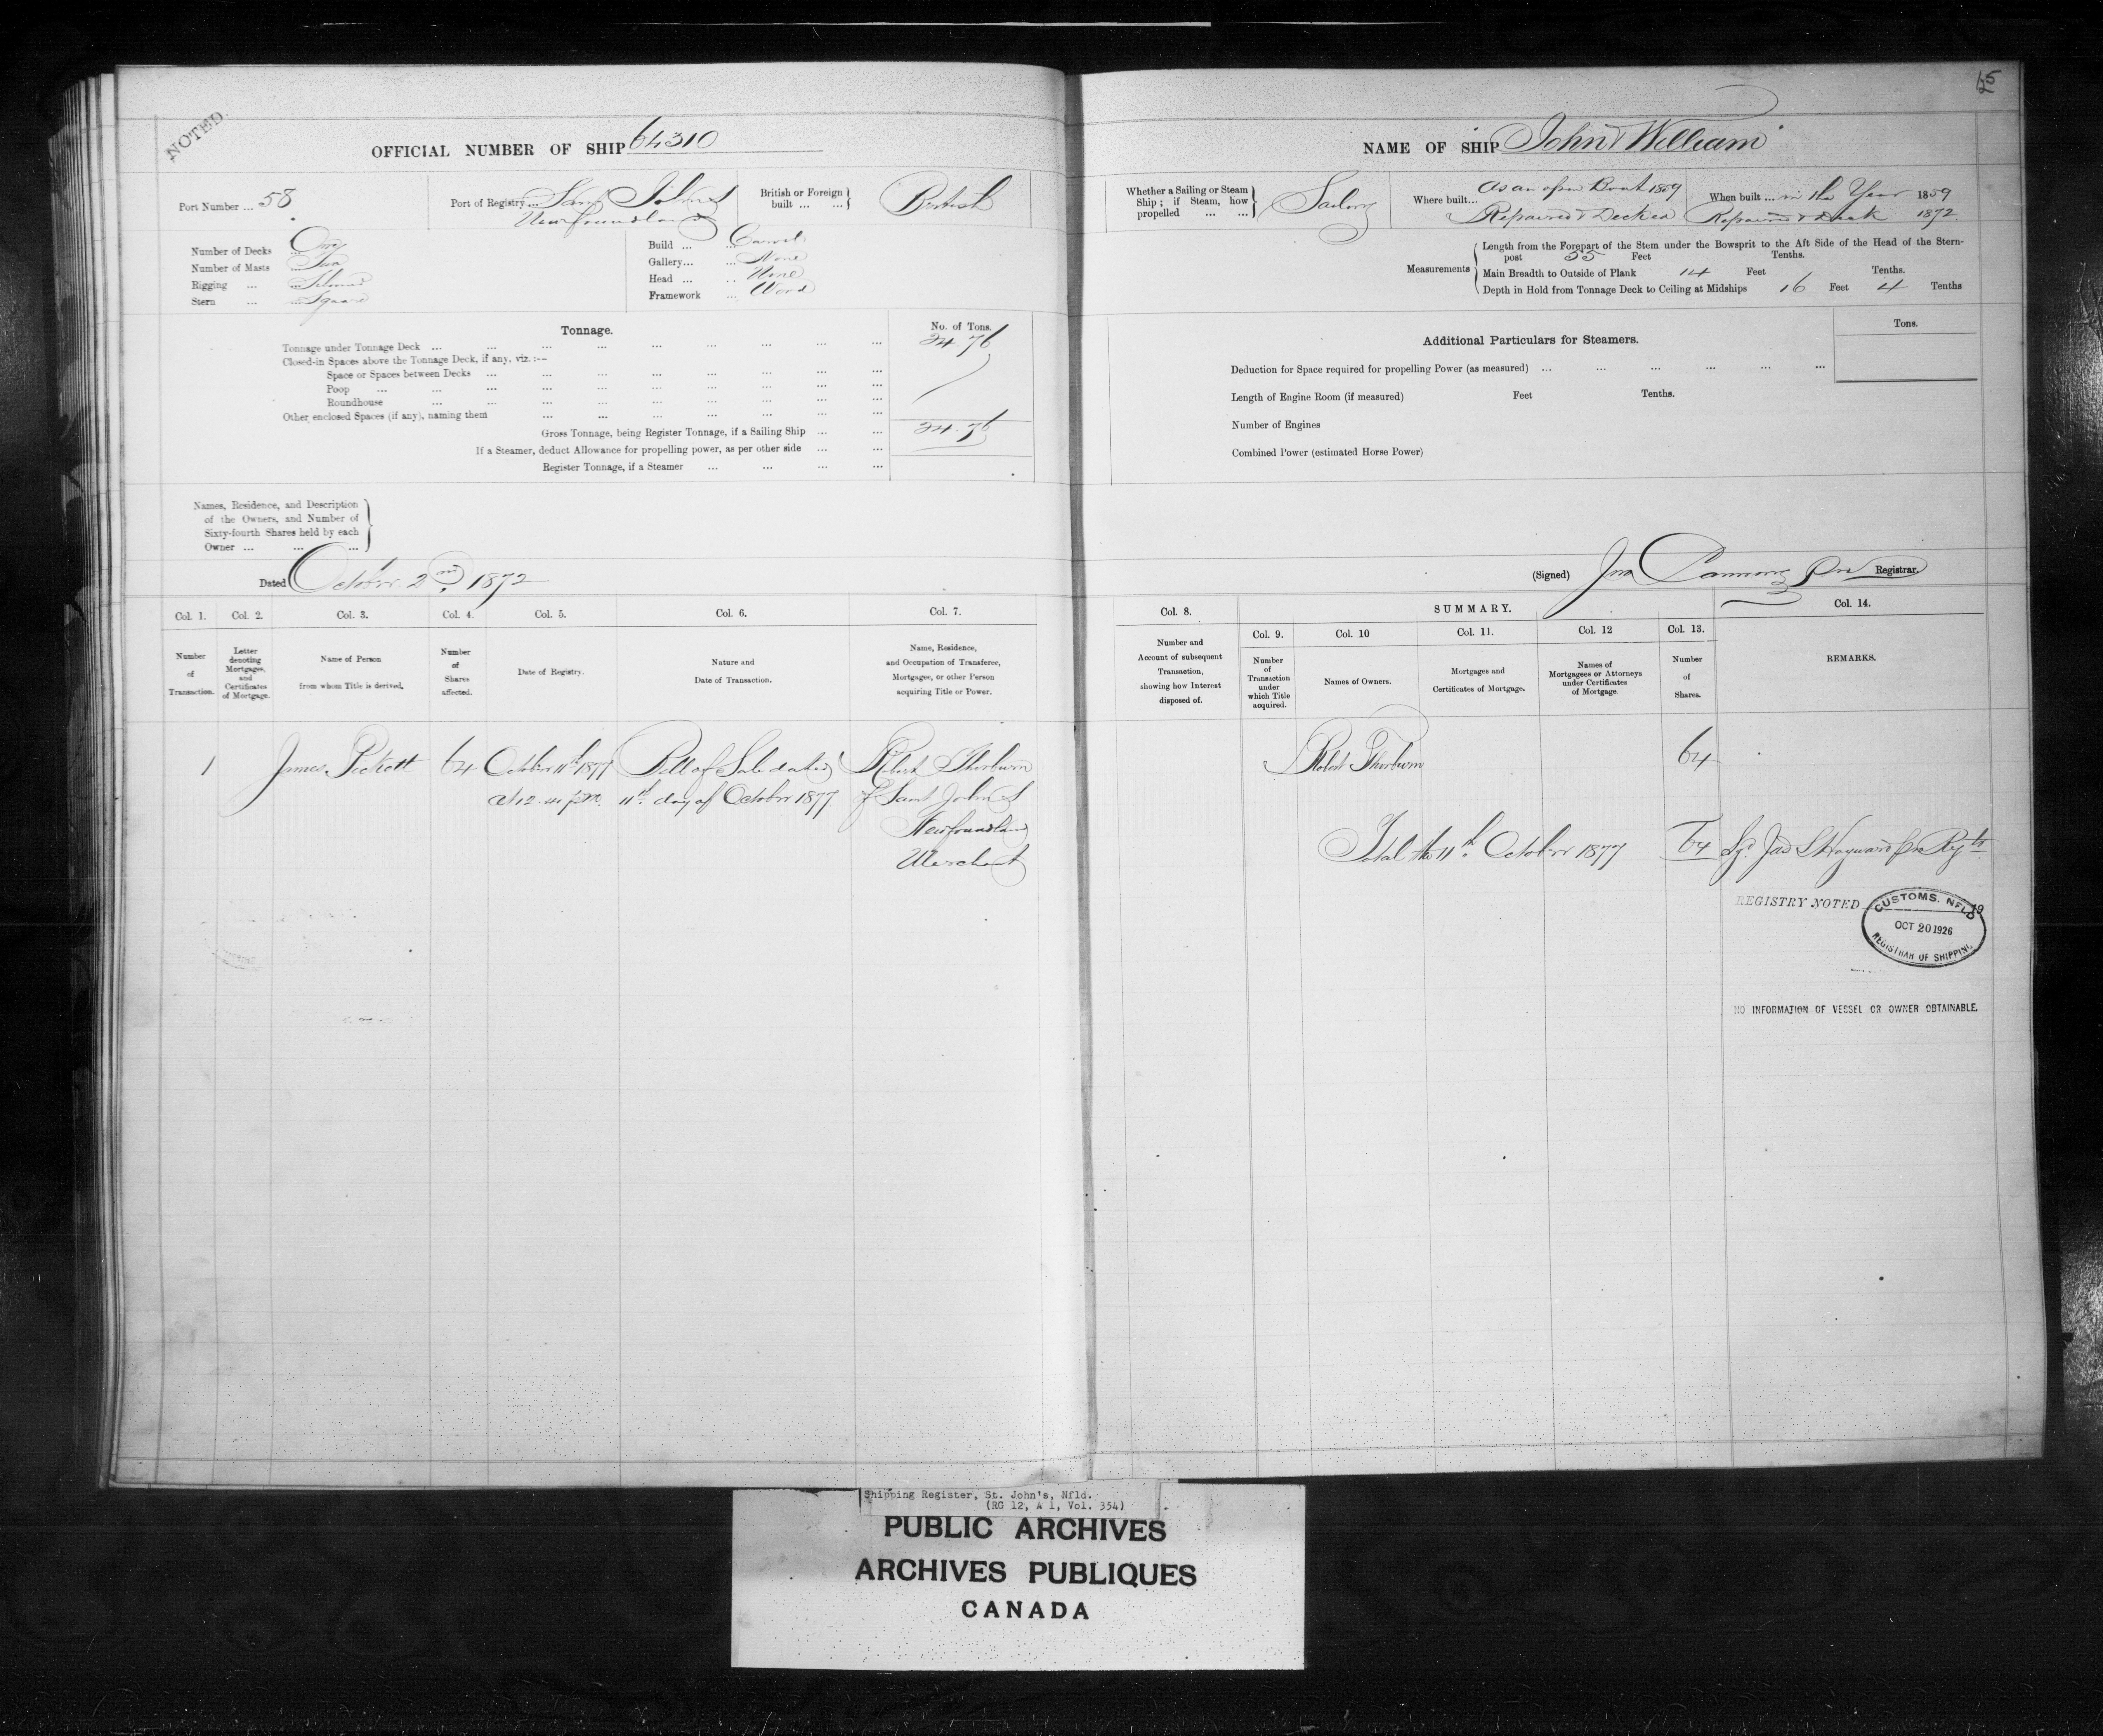 NOTED.
OFFICIAL NUMBER OF SHIP 64310
Port Number ... 58
Port of Registry ... Saint John's
Newfoundland
British or Foreign built ... ... British
Number of Decks ... One
Number of Masts ... Two
Rigging ... Schooner
Stern ... Square
Build ... Carvel
Gallery... ... None
Head ... None
Framework ... Wood
Tonnage.
No. of Tons.
Tonnage under Tonnage Deck ... ... ... ... ... ... ... ... 24.76
Closed-in Spaces above the Tonnage Deck, if any, viz. :—
Space or Spaces between Decks ... ... ... ... ... ... ...
Poop ... ... ... ... ... ... ... ... ...
Roundhouse ... ... ... ... ... ... ... ...
Other enclosed Spaces (if any), naming them ... ... ... ... ... ... ...
Gross Tonnage, being Register Tonnage, if a Sailing Ship ... ... 24.76
If a Steamer, deduct Allowance for propelling power, as per other side ... ...
Register Tonnage, if a Steamer ... ... ... ...
Names, Residence, and Description
of the Owners, and Number of
Sixty-fourth Shares held by each
Owner ... ... ...
Dated October 2nd 1872
Col. 1. Col. 2. Col. 3. Col. 4. Col. 5. Col. 6. Col. 7.
Number of Transaction.
Letter denoting Mortgages, and Certificates of Mortgage.
Name of Person from whom Title is derived.
Number of Shares affected.
Date of Registry.
Nature and Date of Transaction.
Name, Residence, and Occupation of Transferee, Mortgagee, or other Person acquiring Title or Power.
1 James Pickett 64 October 11th 1877 Bill of Sale dated Robert Thorburn
at 12 11th day of October 1877 of Saint John's
Newfoundland
Merchant
NAME OF SHIP "John & William"
Whether a Sailing or Steam Ship; if Steam, how propelled ... ... Sailing
Where built... As an open Boat 1859
Repaired & Decked
When built ... in the Year 1859
Repaired & Deck 1872
Measurements
Length from the Forepart of the Stem under the Bowsprit to the Aft Side of the Head of the Stern-
post 55 Feet Tenths.
Main Breadth to Outside of Plank 14 Feet Tenths.
Depth in Hold from Tonnage Deck to Ceiling at Midships 16 Feet 4 Tenths
Tons.
Additional Particulars for Steamers.
Deduction for Space required for propelling Power (as measured) ... ... ... ... ... ...
Length of Engine Room (if measured) Feet Tenths.
Number of Engines
Combined Power (estimated Horse Power)
(Signed) Jno Registrar.
Col. 8. SUMMARY. Col. 14.
Col. 9. Col. 10 Col. 11. Col. 12 Col. 13.
Number and Account of subsequent Transaction, showing how Interest disposed of.
Number of Transaction under which Title acquired.
Names of Owners.
Mortgages and Certificates of Mortgage.
Names of Mortgagees or Attorneys under Certificates of Mortgage
Number of Shares.
REMARKS.
Robert Thorburn 64
Total the 11th October 1877 64 Sgd Jas S Hayward
REGISTRY NOTED 19
CUSTOMS. NFLD
OCT 20 1926
REGISTRAR OF SHIPPING
NO INFORMATION OF VESSEL OR OWNER OBTAINABLE.
Shipping Register, St. John's, Nfld.
(RG 12, A 1, Vol. 354)
PUBLIC ARCHIVES
ARCHIVES PUBLIQUES
CANADA